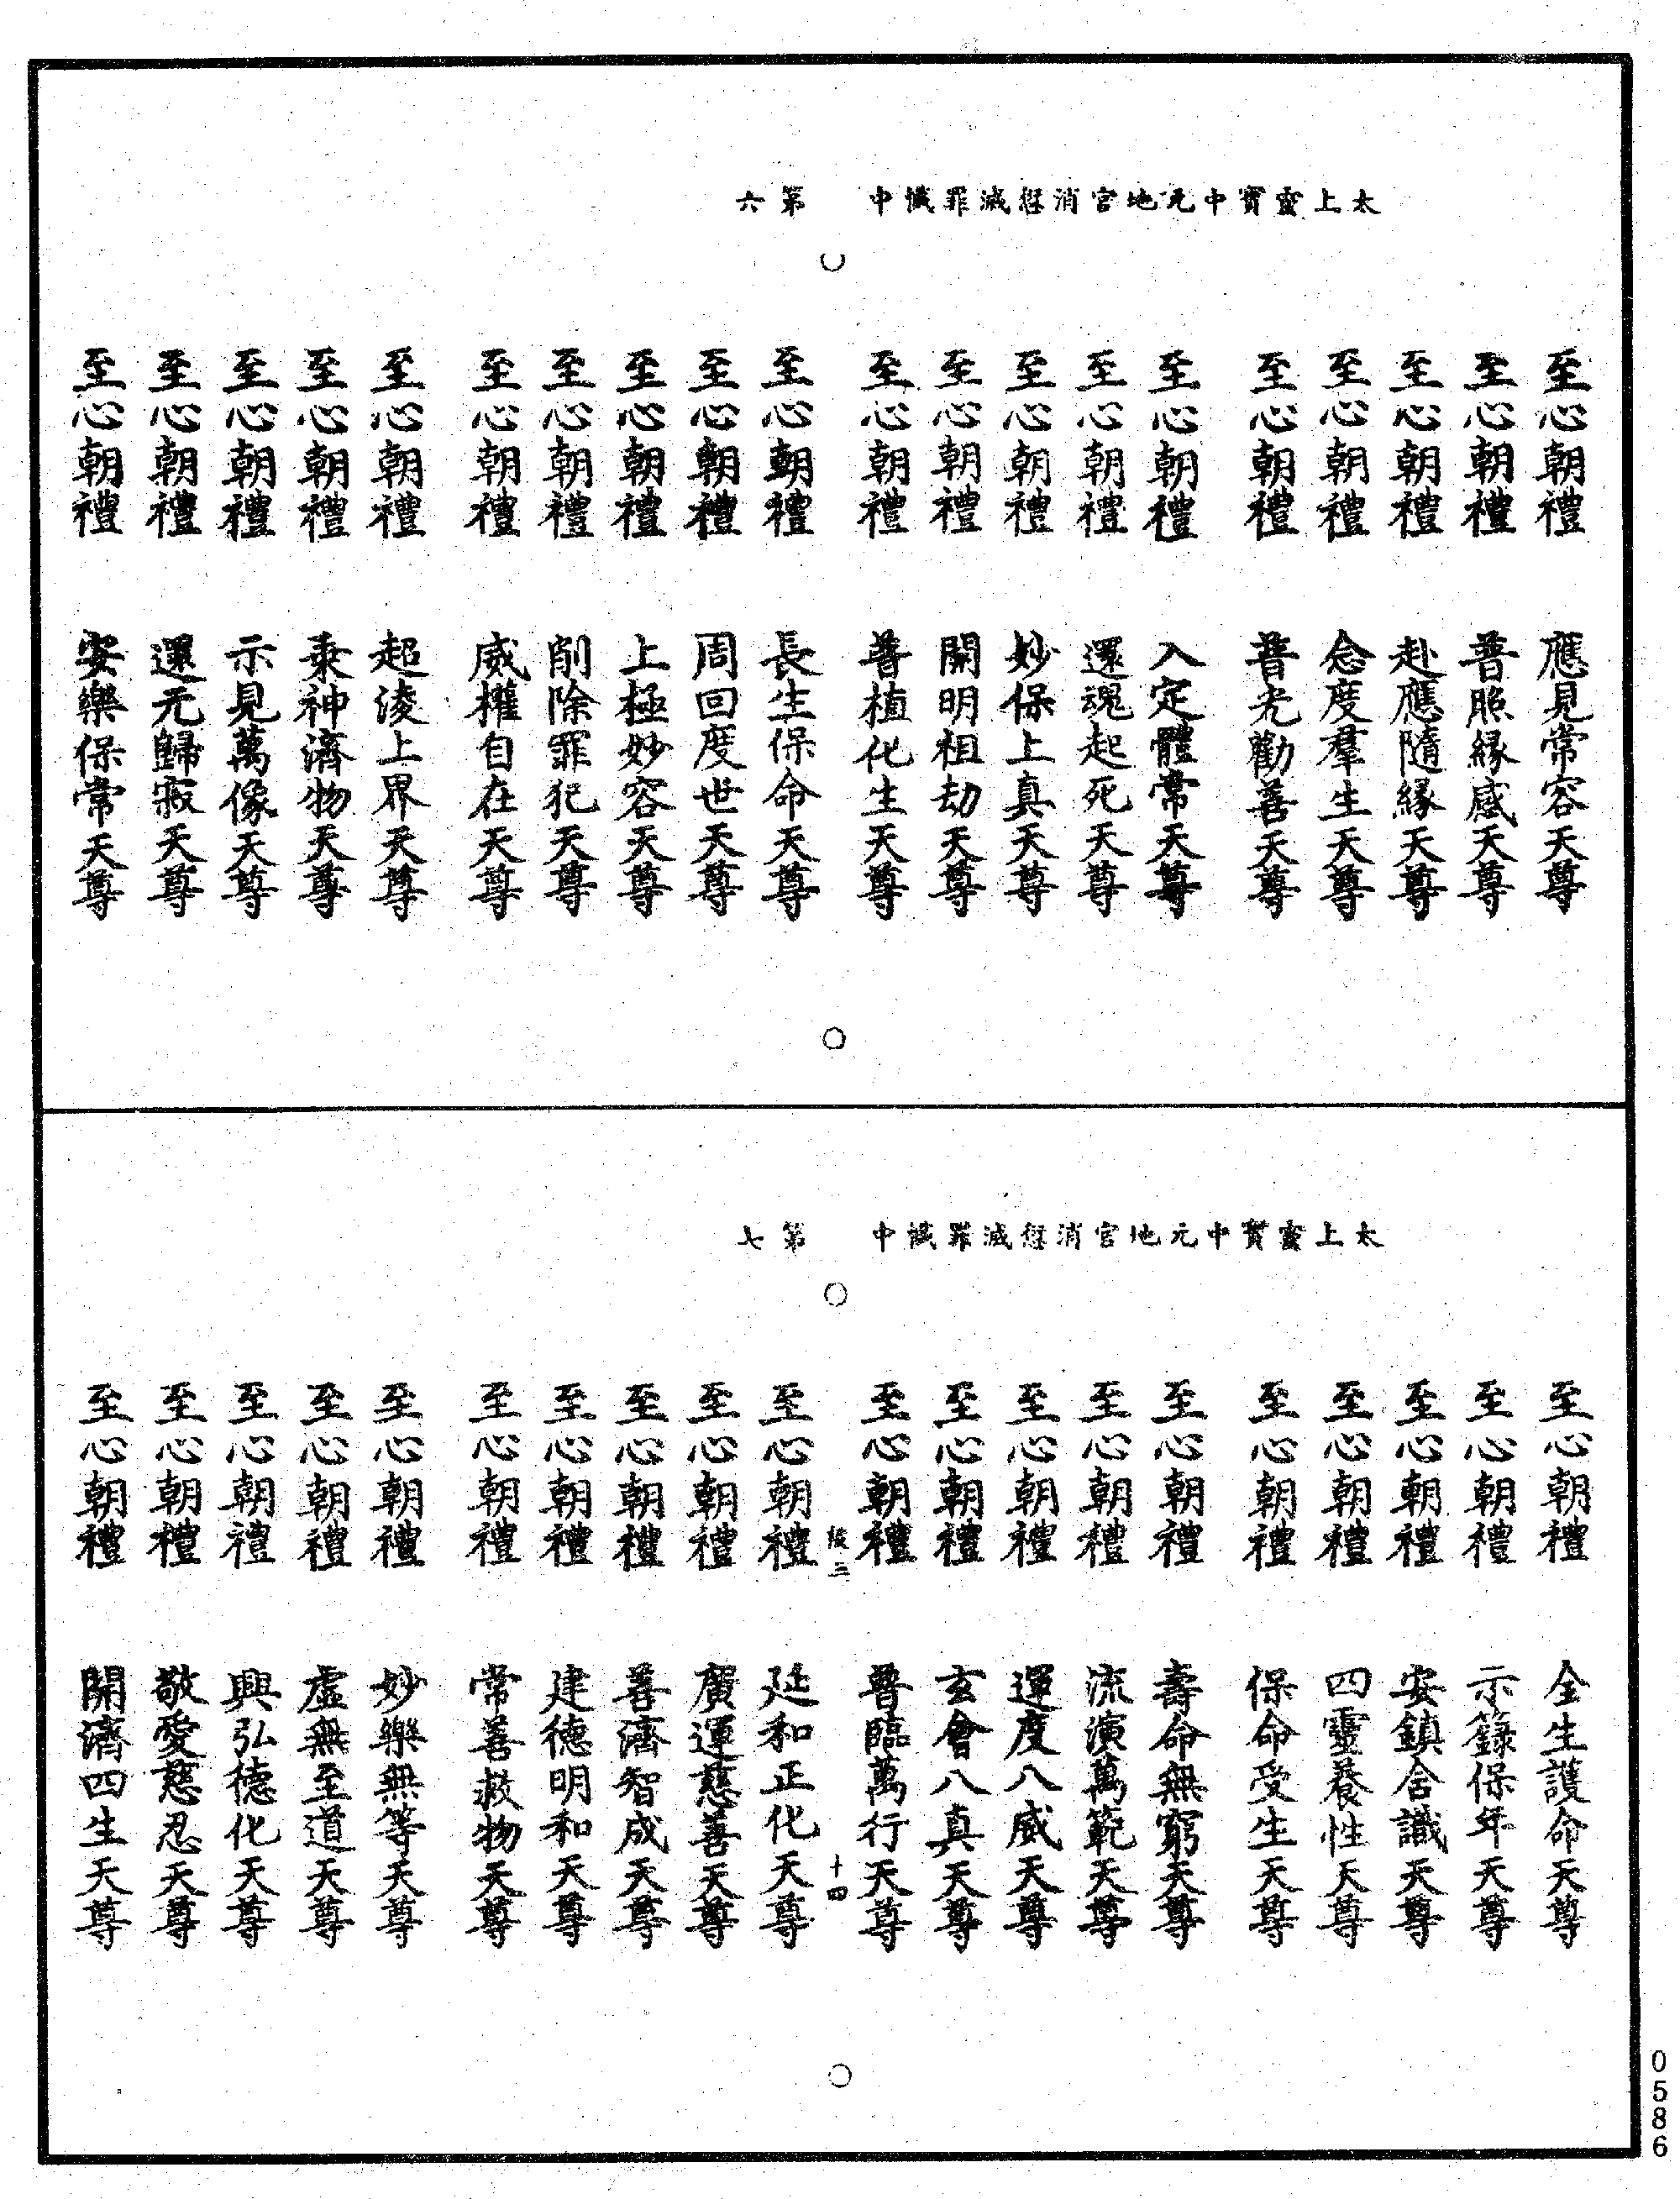 太上靈寶中元地官消愆滅罪懺中 第六
至心朝禮 應見常容天尊
至心朝禮 普照緣感天尊
至心朝禮 赴應隨緣天尊
至心朝禮 念度羣生天尊
至心朝禮 普光勸善天尊
至心朝禮 入定體常天尊
至心朝禮 還魂起死天尊
至心朝禮 妙保上真天尊
至心朝禮 開明祖劫天尊
至心朝禮 普植化生天尊
至心朝禮 長生保命天尊
至心朝禮 周回度世天尊
至心朝禮 上極妙容天尊
至心朝禮 削除罪犯天尊
至心朝禮 威權自在天尊
至心朝禮 超淩上界天尊
至心朝禮 秉神濟物天尊
至心朝禮 示見萬像天尊
至心朝禮 還元歸寂天尊
至心朝禮 安樂保常天尊
太上靈寶中元地官消愆滅罪懺中 第七
至心朝禮 全生護命天尊
至心朝禮 示籙保年天尊
至心朝禮 安鎮含識天尊
至心朝禮 四靈養性天尊
至心朝禮 保命受生天尊
至心朝禮 壽命無窮天尊
至心朝禮 流演萬範天尊
至心朝禮 運度八威天尊
至心朝禮 玄會八真天尊
至心朝禮 普臨萬行天尊
三 十四
至心朝禮 延和正化天尊
至心朝禮 廣運慈善天尊
至心朝禮 善濟智成天尊
至心朝禮 建德明和天尊
至心朝禮 常善救物天尊
至心朝禮 妙樂無等天尊
至心朝禮 虛無至道天尊
至心朝禮 興弘德化天尊
至心朝禮 敬愛慈忍天尊
至心朝禮 開濟四生天尊
0586